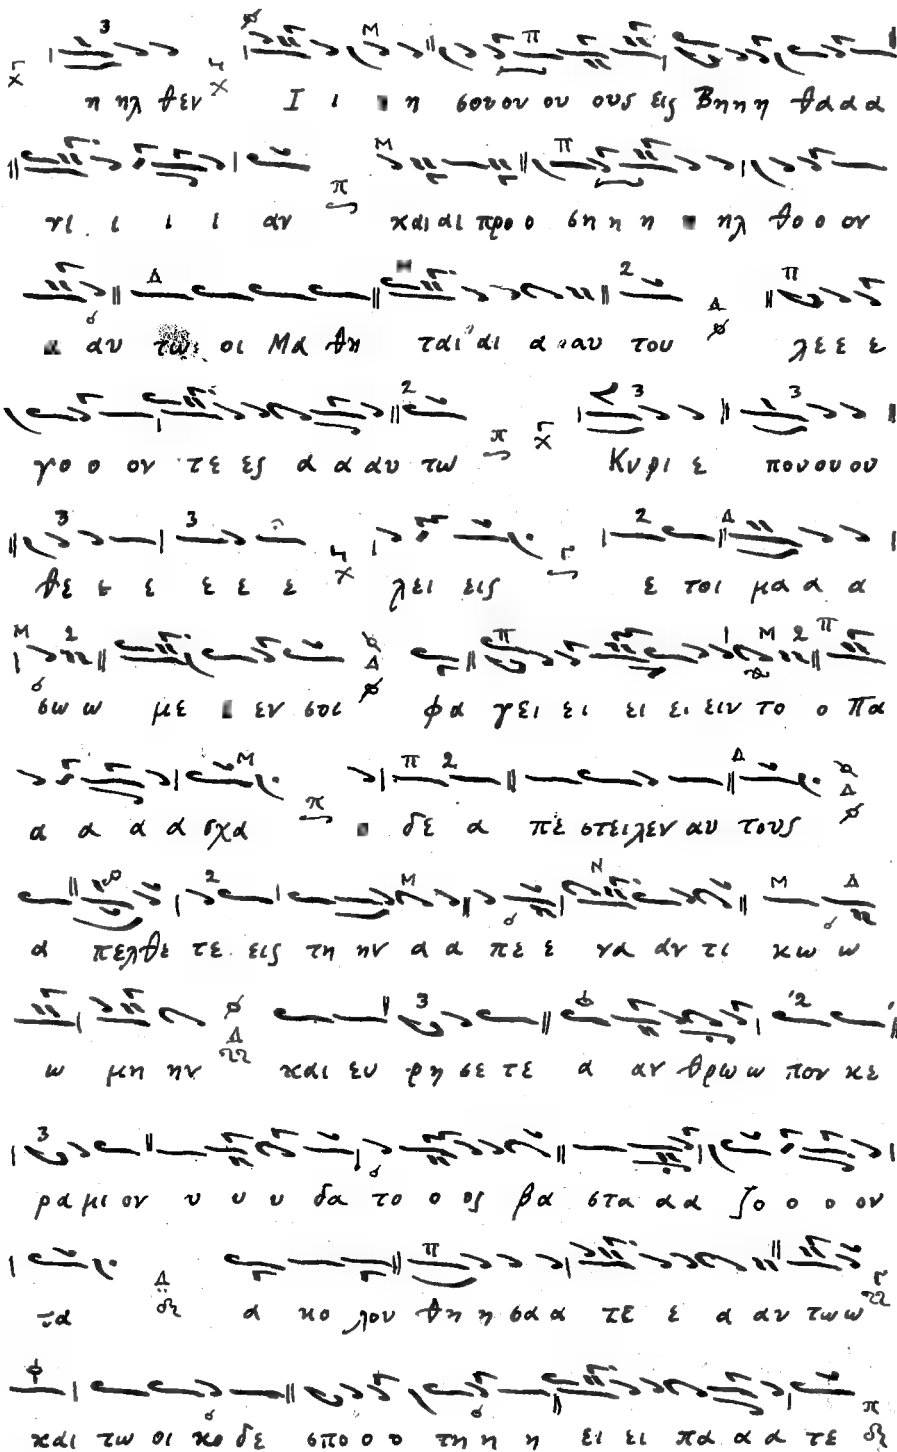 η ηλ θεν Ι ι η σουου ου ους εις Βηηη θααα
νι ι ι ι αν και αι προ ο ση η η ηλ θο ο ον
αυ τω οι Μα θη ται αι α αυ του λε ε ε
γο ο ον τε ες α α αυ τω Κυ ρι ε που ου ου
θε ε ε ε ε ε λει εις ε τοι μα α α
σω ω με εν σοι φα γει ει ει ει ειν το ο Πα
α α α α σχα δε α πε στειλεν αυ τους
α πελθε τε εις τη ην α α πε ε να αν τι κω ω
ω μη ην και ευ ρη σε τε α αν θρω ω πον κε
ρα μι ον υ υ υ δα το ο ος βα στα αα ζο ο ο ον
τα α κο λου θη η σα α τε ε α αυ τωω
και τω οι κο δε σπο ο ο τη η η ει ει πα α α τε